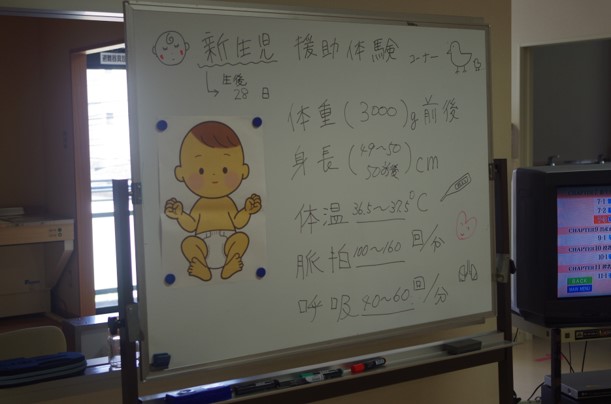 新生児 援助体験 コーナー
↳ 生後28日
体重(3000)g前後
身長(49~50 50前後)cm
体温 36.5~37.5°C
脈拍 100~160 回/分
呼吸 40~60 回/分
BACK
MAIN MENU